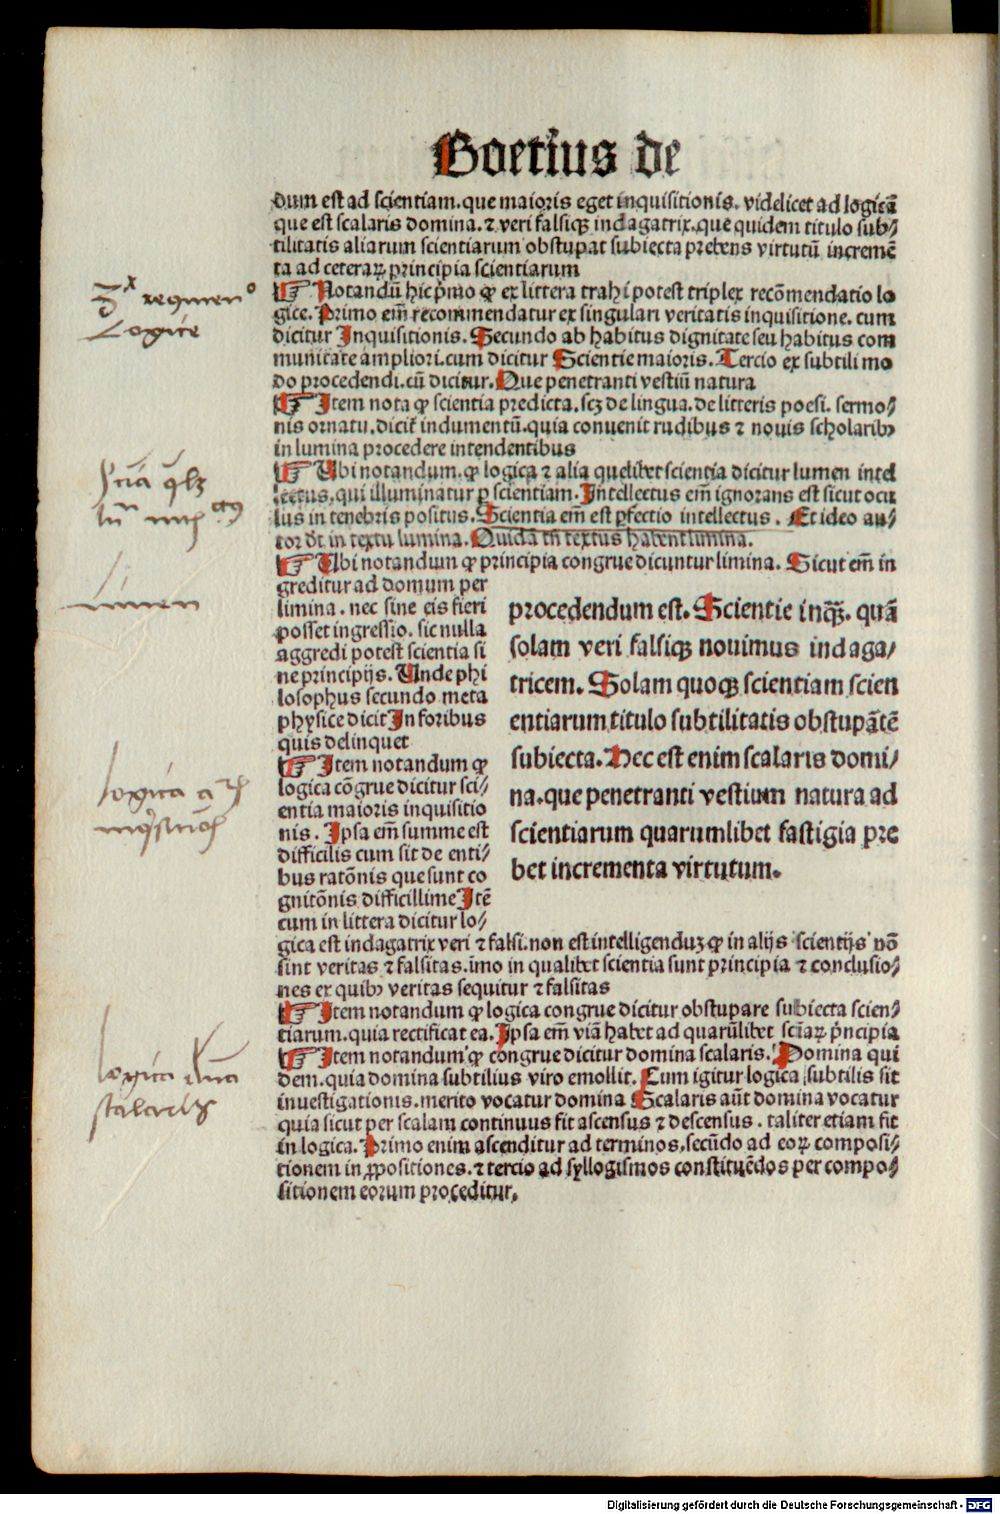 Boetius de
dum est ad scientiam. que maioris eget inquisitionis. videlicet ad logicã
que est scalaris domina. ⁊ veri falsiqꝫ indagatrix. que quidem titulo sub/
tilitatis aliarum scientiarum obstupat subiecta prebens virtutũ incremẽ
ta ad ceteraꝝ principia scientiarum
☞ Notandũ hic p̃mo ꝙ ex littera trahi potest triplex recõmendatio lo
gice. Primo em̃ recommendatur ex singulari veritatis inquisitione. cum
dicitur Inquisitionis. Secundo ab habitus dignitate seu habitus com
munitate ampliori. cum dicitur Scientie maioris. Tercio ex subtili mo
do procedendi. cũ dicitur. Que penetranti vestiũ natura
☞ Item nota ꝙ scientia predicta. scꝫ de lingua. de litteris poesi. sermo/
nis ornatu. dicit̃ indumentũ. quia conuenit rudibus ⁊ nouis scholaribꝰ
in lumina procedere intendentibus
☞ Ubi notandum. ꝙ logica ⁊ alia quelibet scientia dicitur lumen intel
lectus. qui illuminatur ꝑ scientiam. Intellectus em̃ ignorans est sicut ocu
lus in tenebris positus. Scientia em̃ est ꝑfectio intellectus. Et ideo au/
tor dt̃ in textu lumina. Quidã tñ textus habent limina.
☞ Ubi notandum ꝙ principia congrue dicuntur limina. Sicut em̃ in
greditur ad domum per
limina. nec sine eis fieri
posset ingressio. sic nulla
aggredi potest scientia si
ne principijs. Unde phi
losophus secundo meta
physice dicit In foribus
quis delinquet
☞ Item notandum ꝙ
logica cõgrue dicitur sci/
entia maioris inquisitio
nis. Ipsa em̃ summe est
difficilis cum sit de enti/
bus ratõnis que sunt co
gnitõnis difficillime Itẽ
cum in littera dicitur lo/
procedendum est. Scientie inqꝫ. quã
solam veri falsiqꝫ nouimus indaga/
tricem. Solam quoqꝫ scientiam scien
entiarum titulo subtilitatis obstupãtẽ
subiecta. Hec est enim scalaris domi/
na. que penetranti vestium natura ad
scientiarum quarumlibet fastigia pre
bet incrementa virtutum.
gica est indagatrix veri ⁊ falsi. non est intelligenduꝫ ꝙ in alijs scientijs nõ
sint veritas ⁊ falsitas. ĩmo in qualibet scientia sunt principia ⁊ conclusio/
nes ex quibꝰ veritas sequitur ⁊ falsitas
☞ Item notandum ꝙ logica congrue dicitur obstupare subiecta scien/
tiarum. quia rectificat ea. Ipsa em̃ viã habet ad quarũlibet sciãꝝ p̃ncipia
☞ Item notandum ꝙ congrue dicitur domina scalaris. Domina qui
dem. quia domina subtilius viro emollit. Cum igitur logica subtilis sit
inuestigationis. merito vocatur domina Scalaris aũt domina vocatur
quia sicut per scalam continuus fit ascensus ⁊ descensus. taliter etiam fit
in logica. Primo enim ascenditur ad terminos. secũdo ad eoꝝ composi/
tionem in ꝓpositiones. ⁊ tercio ad syllogismos constituẽdos per compo/
sitionem eorum proceditur.
Logice
limen
logica
logica dña
scalaris
Digitalisierung gefördert durch die Deutsche Forschungsgemeinschaft - DFG